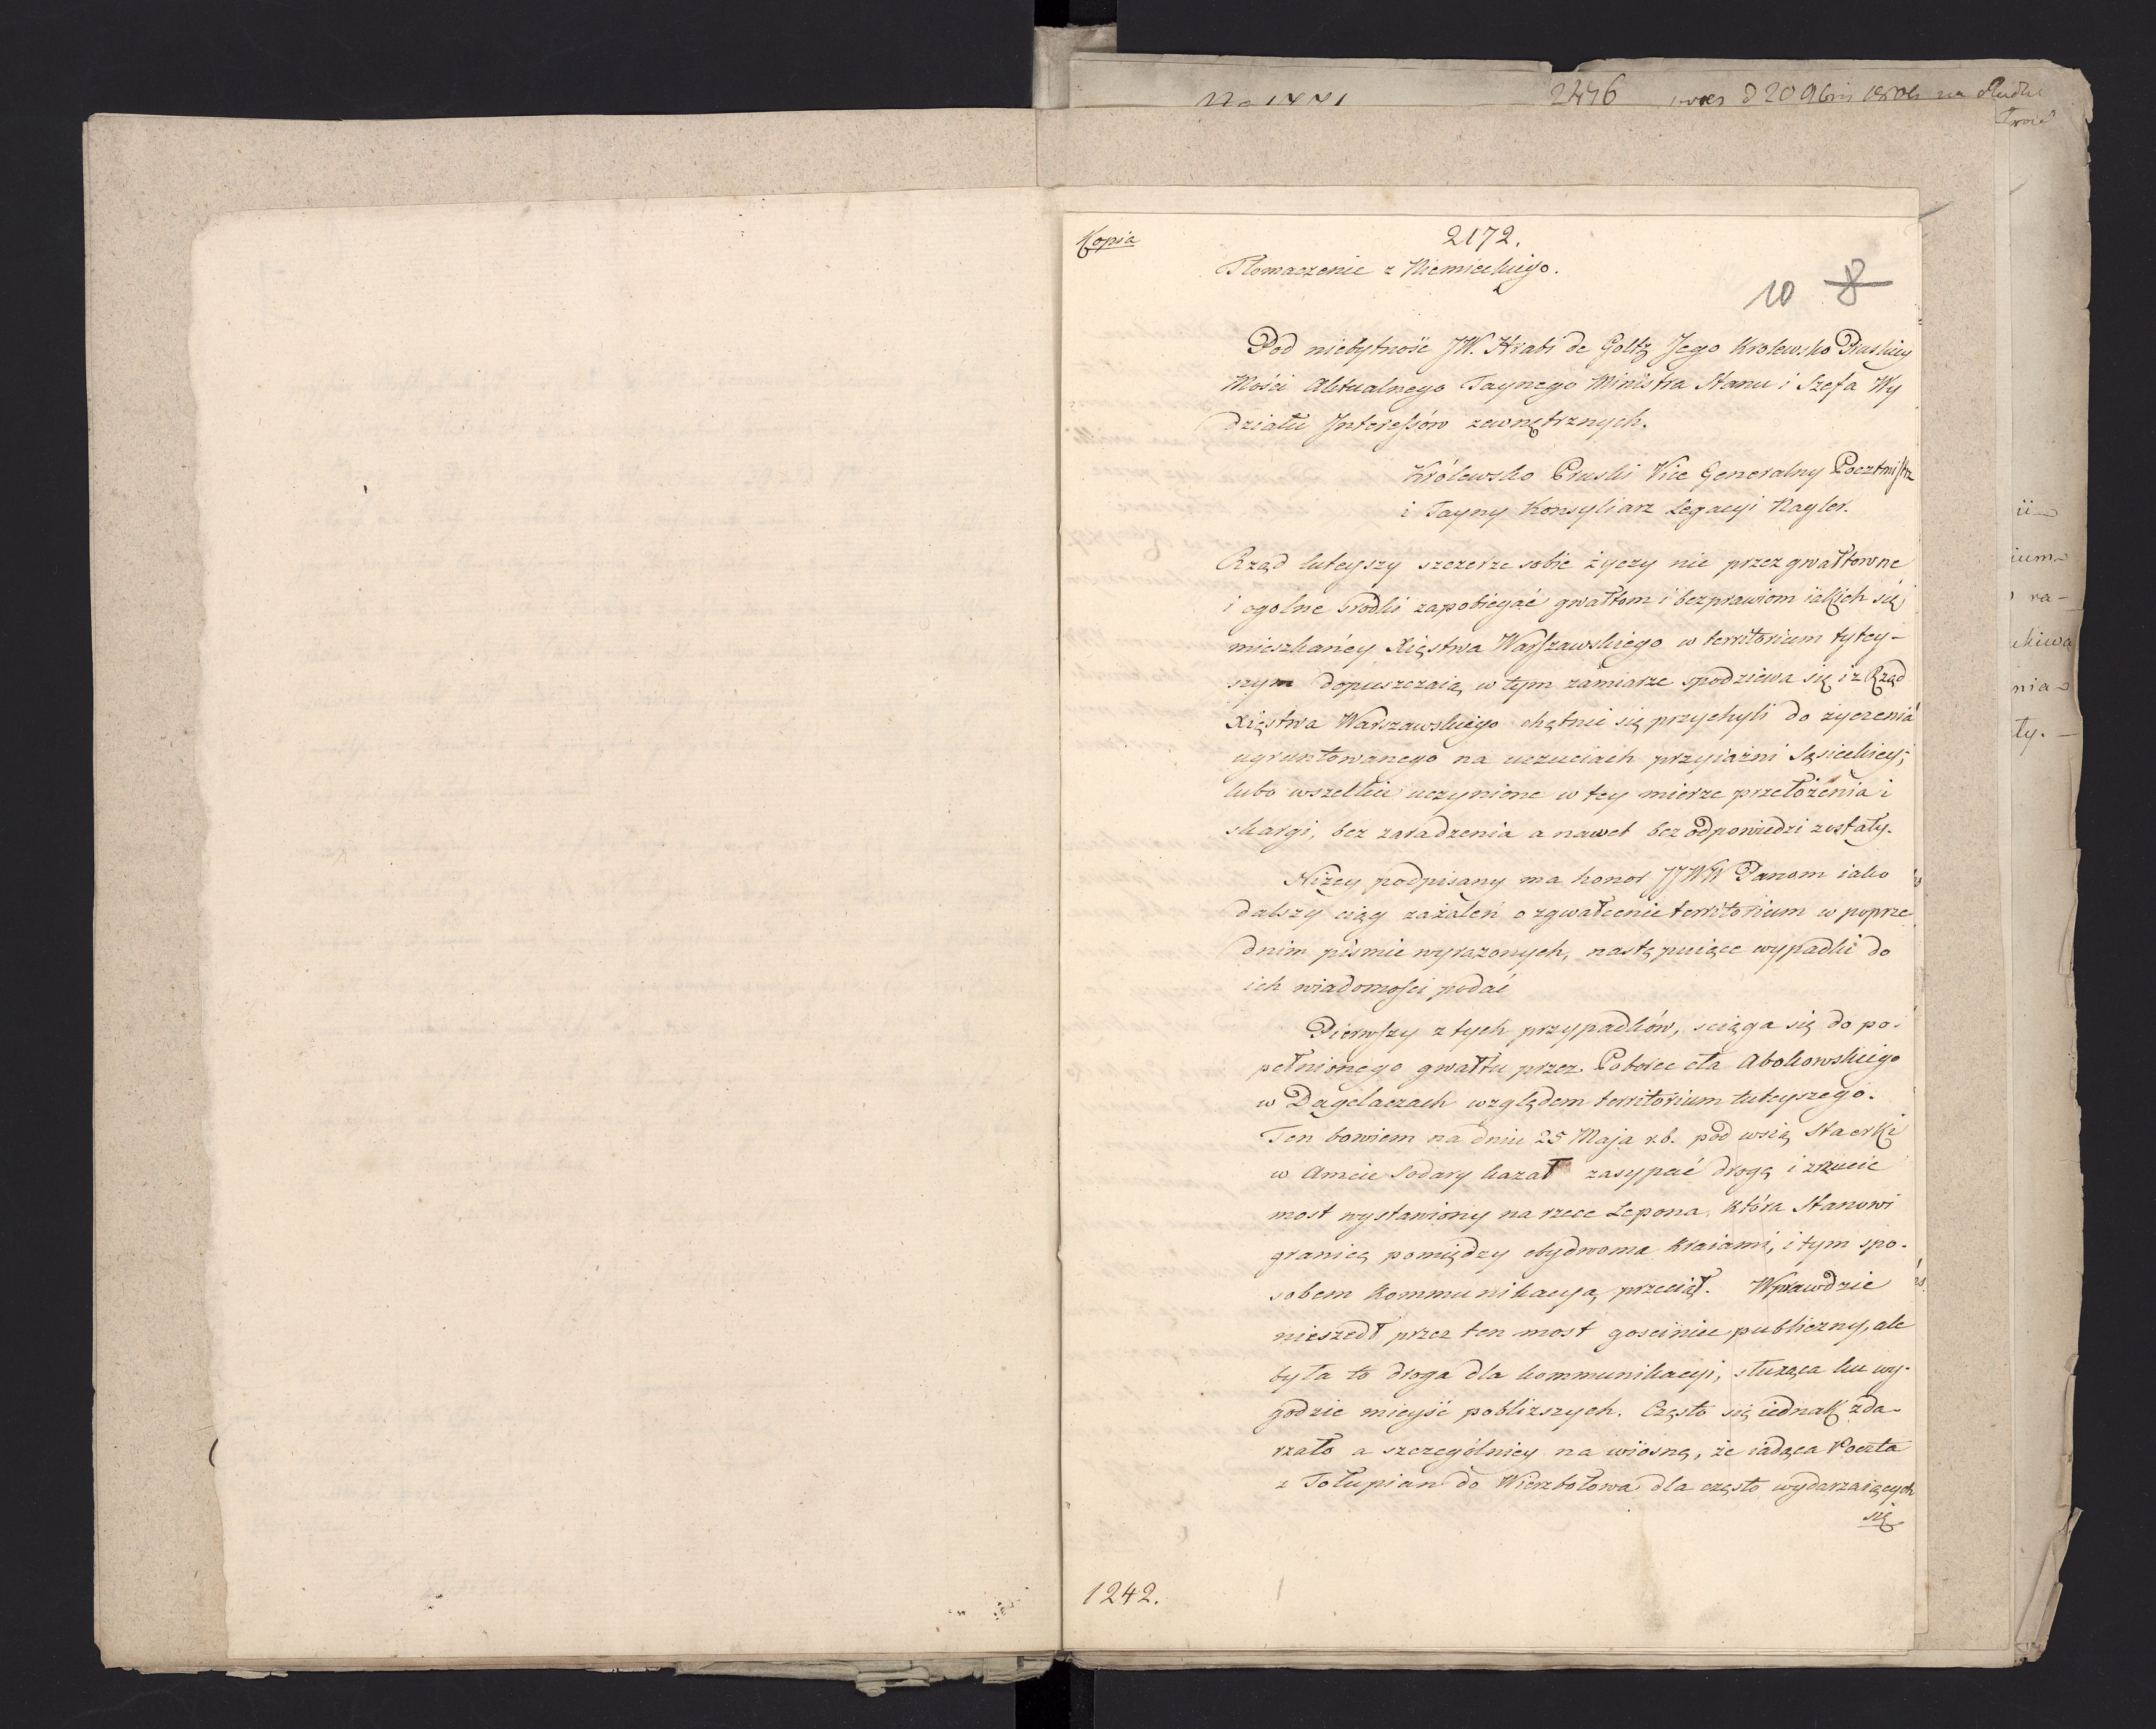 2446
Kopia
2172.
Tłomaczenie z Niemieckiego.
10 8
Pod niebytność JW. Hrabi de Goltz Jego Krolewsko Pruskiey
Mości Aktualnego Taynego Ministra Stanu i Szefa Wy
działu Interessów zewnętrznych.
Królewsko Pruski Vice Generalny Pocztmistrz
i Tayny Konsyliarz Legacyi Nagler.
Rząd tuteyszy szczerze sobie życzy nie przez gwałtowne
i ogolne srodki zapobiegać gwałtom i bezprawiom iakich się
mieszkańcy Xięstwa Warszawskiego w territorium tytey-
szym dopuszczaią, w tym zamiarze spodziewa się iż Rząd
Xięstwa Warszawskiego chętnie się przychyli do życzenia
ugruntowanego na uczuciach przyiaźni Sąsieckiey;
lubo wszelkie uczynione w tey mierze przełożenia i
skargi, bez zaradzenia a nawet bez odpowiedzi zostały.
Niżey podpisany ma honor JJWW Panom iako
dalszy ciąg zażaleń o zgwałcenie territorium w poprze
dnim pismie wyrazonych, następuiące wypadki do
ich wiadomości podać
Pierwszy z tych przypadków, sciąga się do po-
pełnionego gwałtu przez Poborcę cła Abokowskiego
w Dągelaczach względem territorium tuteyszego.
Ten bowiem na dniu 25 Maja r.b. pod wsią Staerki
w Amcie Sodary kazał zasypać drogę i zrzucić
most wystawiony na rzece Lepona, która Stanowi
granicę pomiędzy obydwoma Kraiami, i tym spo-
sobem Kommunikacyą przeciął. Wprawdzie
nieszedł przez ten most gosciniec publiczny, ale
była to droga dla kommunikacyi, służąca ku wy-
godzie mieysc poblizszych. Często się iednak zda-
rzało a szczególniey na wiosnę, że iadąca Poczta
z Tołupian do Wierzbołowa dla często wydarzaiących
się
1242.